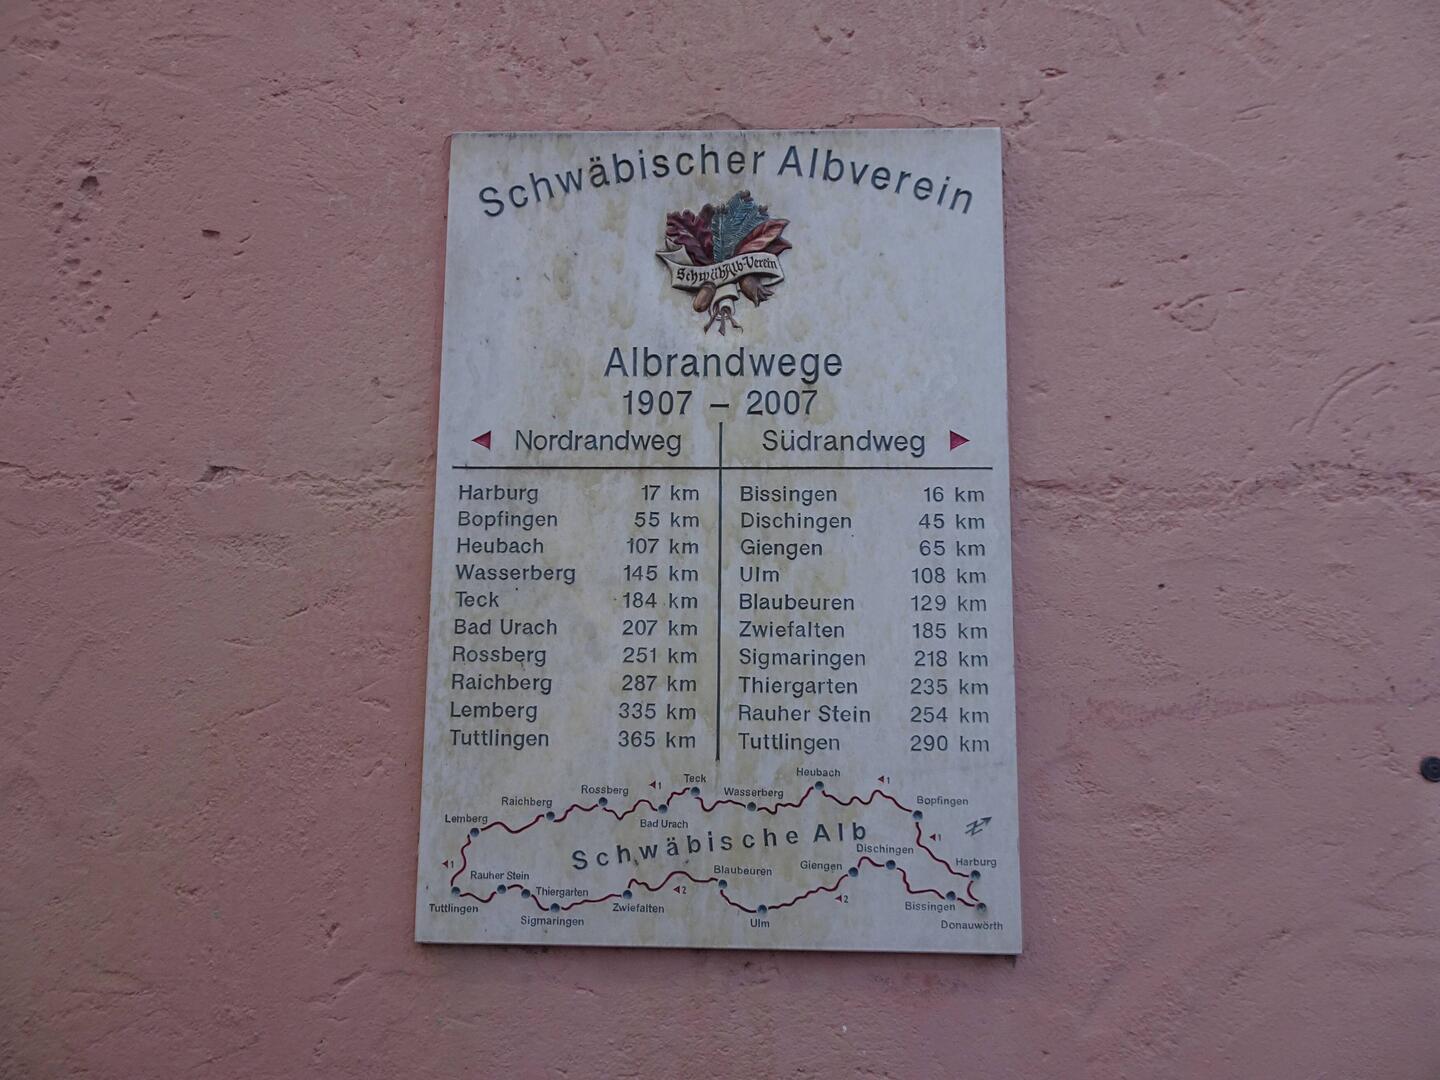 Schwäbischer Albverein
Schwäb.Alb-Verein
Albrandwege
1907 – 2007
Nordrandweg
Harburg 17 km
Bopfingen 55 km
Heubach 107 km
Wasserberg 145 km
Teck 184 km
Bad Urach 207 km
Rossberg 251 km
Raichberg 287 km
Lemberg 335 km
Tuttlingen 365 km
Südrandweg
Bissingen 16 km
Dischingen 45 km
Giengen 65 km
Ulm 108 km
Blaubeuren 129 km
Zwiefalten 185 km
Sigmaringen 218 km
Thiergarten 235 km
Rauher Stein 254 km
Tuttlingen 290 km
Heubach
1
Teck
1
Rossberg
Wasserberg
Raichberg
Bopfingen
Lemberg
Bad Urach
Schwäbische Alb
1
Dischingen
1
Harburg
Giengen
Blaubeuren
Rauher Stein
Thiergarten
2
2
Tuttlingen
Sigmaringen
Zwiefalten
Ulm
Bissingen
Donauwörth